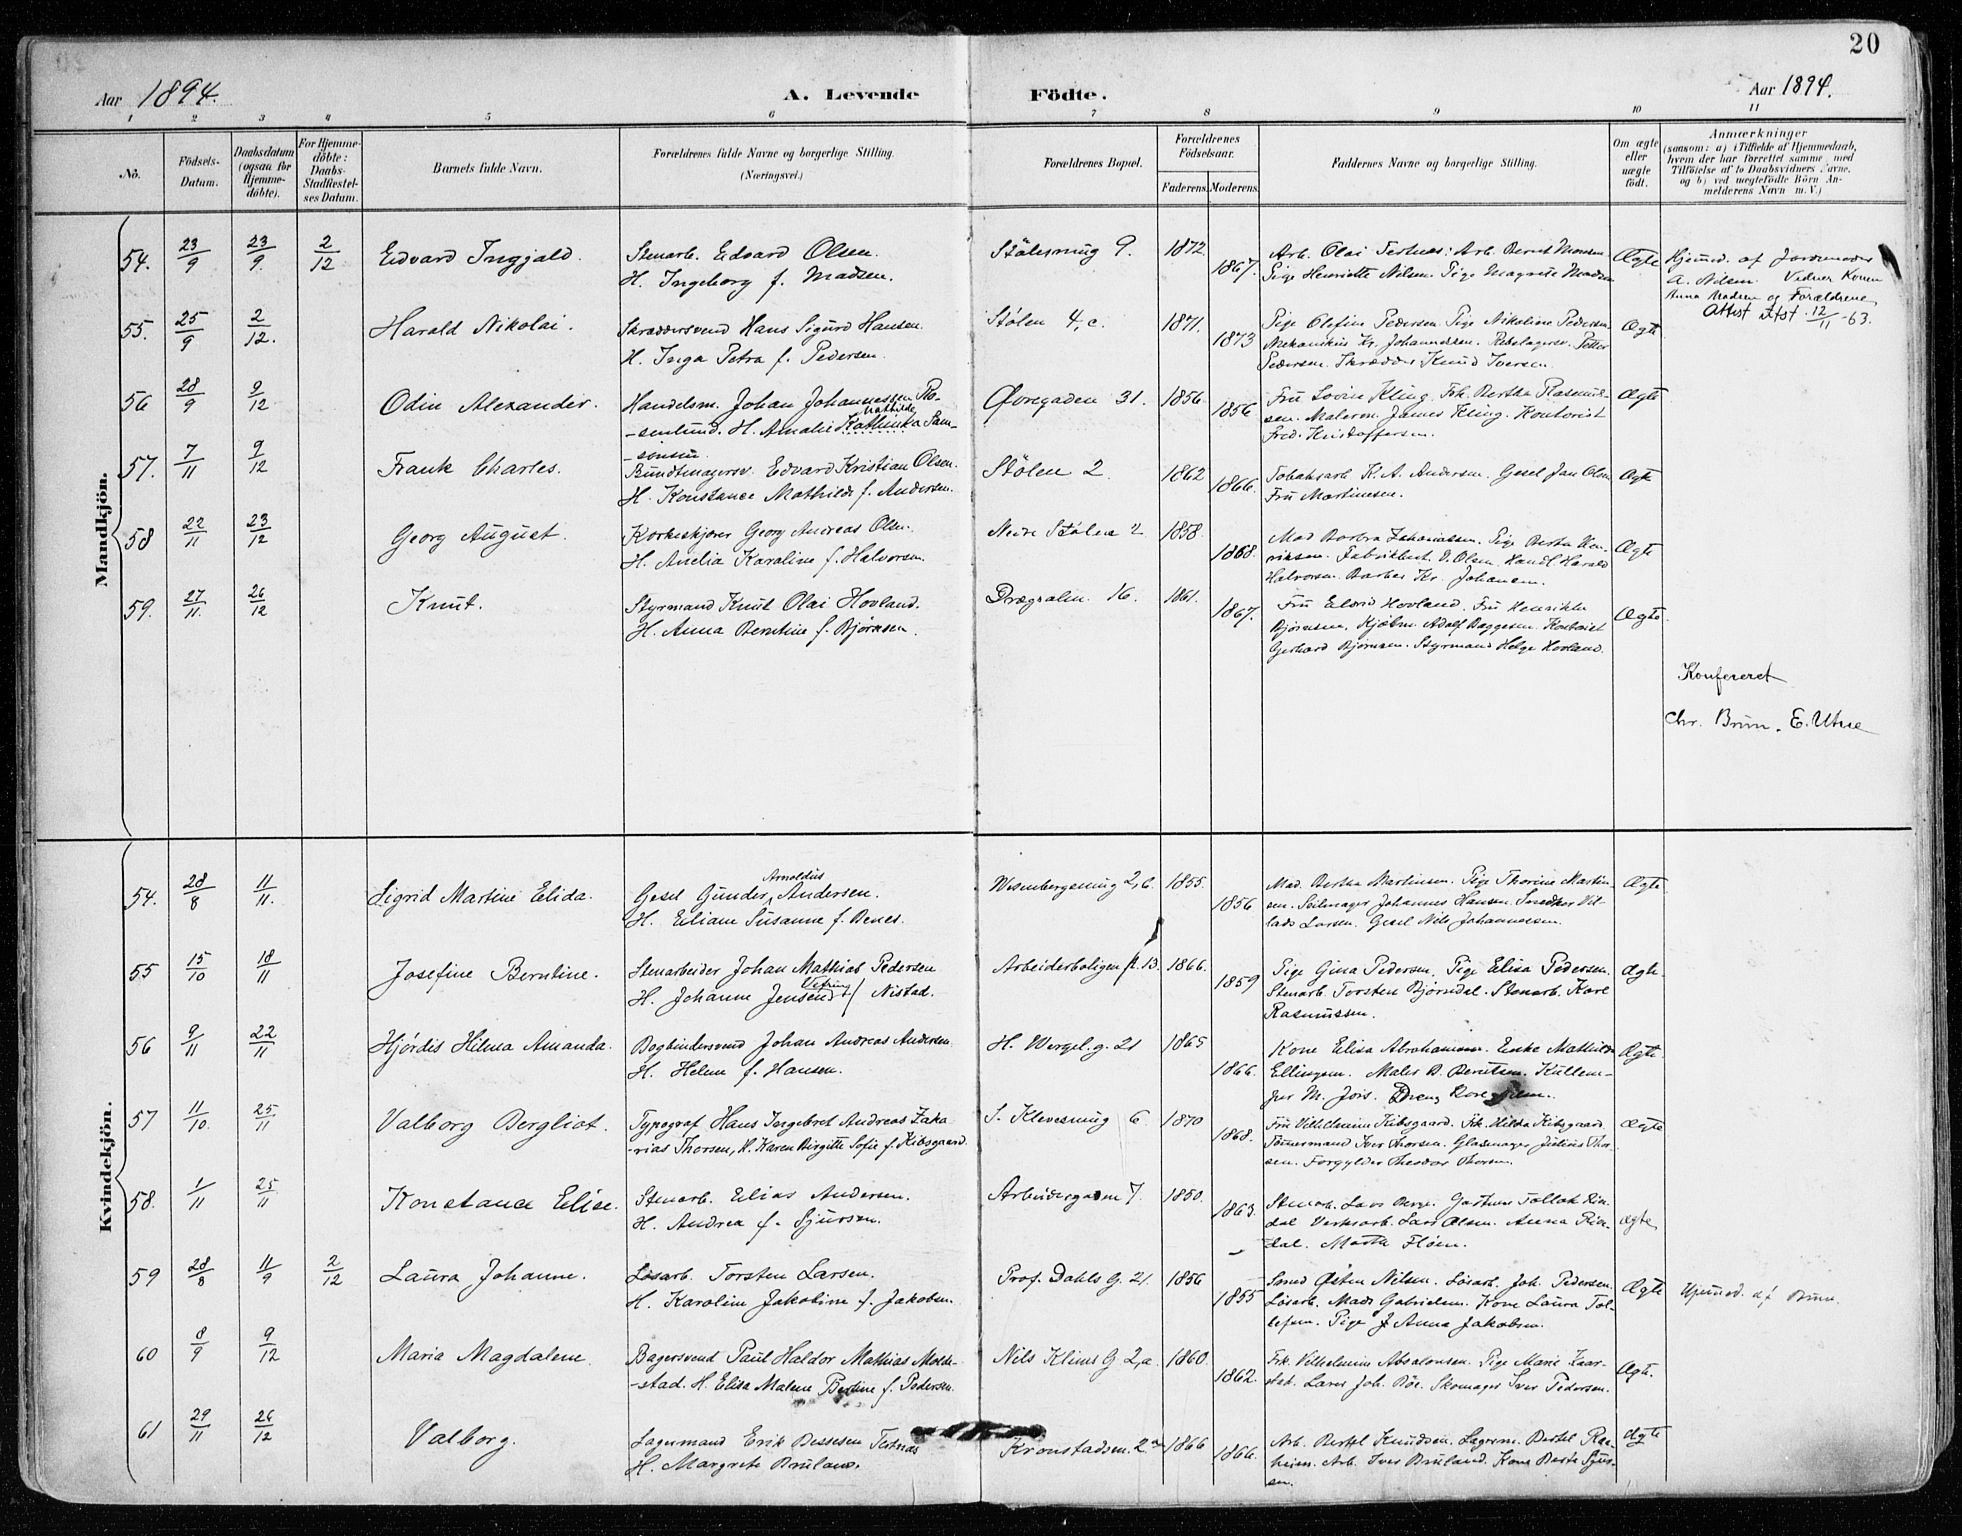 20
Aar 1894.
A. Levende Födte.
Aar 1894.
1 2 3 4 5 6 7 8 9 10 11
No.
Födsels-Datum.
Daabsdatum (ogsaa for Hjemme-döbte).
For Hjemme-döbte: Daabs-Stadfæstel-ses Datum.
Barnets fulde Navn.
Forældrenes fulde Navne og borgerlige Stilling.
(Næringsvei.)
Forældrenes Bopæl.
Forældrenes Födselsaar.
Faderens. Moderens.
Faddernes Navne og borgerlige Stilling.
Om ægte eller uægte født.
Anmærkninger
(saasom: a) i Tilfælde af Hjemmedaab, hvem der har forrettet samme, med Tilföielse af to Daabsvidners Navne, og b) ved uægtefödte Börn An-melderens Navn m. V.)
Mandkjön.
54. 23/9 23/9. 2/12 Edvard Ingjald. Stenarb. Edvard Olsen. Stølesmug 9. 1872. Arb. Olai Testnes: Arb. Bernt Monsen Ægte Hjemmed. af Jordemoder
H. Ingeborg f. Madsen. 1867. Pige Henriette Nilsen. Pige Magnede Madsen A. Nilsen. Vidner Konen
Anna Madsen og Forældrene.
Attest Utst. 12/11-63.
55. 25/9 2/12. Harald Nikolai. Skræddersvend Hans Sigurd Hansen. Stølen 4, c. 1871. Pige Olefine Pedersen. Pige Nikoline Pedersen Ægte
H. Inga Petra f. Pedersen. 1873 Mekanikus Kr. Johannessen. Rebslagersv. Petter
Pedersen. Skrædder Knud Iversen.
56 28/9 9/12 Odin Alexander. Handelsm. Johan Johannessen Ro- Øvregaden 31. 1856. Fru Lovise Kling. Frk. Bertha Rasmus- Ægte
Mathilde
-senlund. H. Amalie Kathinka Sam- 1856 sen. Malerm. James Kling. Kontorist
-sonsen Fred. Kristoffersen.
57. 7/11 9/12 Frank Charles. Bundtmagersv. Edvard Kristian Olsen. Stølen 2. 1862 Tobaksarb K. A. Andersen. Gesel Jan Olsen Ægte
H. Konstance Mathilde f. Andersen. 1866. Fru Martinsen.
58 22/11 23/12 Georg August. Korkeskjærer Georg Andreas Olsen. Nedre Stølen 2 1858. Mad Barbra Zahariassen. Pige Bertha Hen- Ægte
H. Amelia Karoline f. Halvorsen. 1868. riksen. Fabrikbest. O. Olsen. Handl. Harald
Halvorsen. Barber Kr. Johansen.
59. 27/11. 26/12 Knut. Styrmand Knut Olai Hovland. Drægsalm. 16. 1861. Fru Elvrid Hovland. Fru Henrikke Ægte.
H. Anna Berntine f. Bjørnsen. 1867. Bjørnsen. Kjøbm. Adolf Baggesen. Kontorist
Gerhard Bjørnsen. Styrmand Helge Hovland.
Konfereret
Chr. Brun. E. Utne
Kvindekjön.
54. 28/8 11/11. Sigrid Martine Elida. Gesel Gunder Arnoldus Andersen. Wesenbergsmug 2, c. 1855. Mad. Bertha Martinsen. Pige Thorine Martin- Ægte
H. Eliane Susanne f. Benes. 1856 sen. Seilmager Johannes Hansen. Snedker Vil-
lads Larsen. Gesel Nils Johannessen.
55 15/10 18/11 Josefine Berntine. Stenarbeider Johan Mathias Pedersen Arbeiderboligen 13. 1866. Pige Gina Pedersen. Pige Elisa Pedersen. Ægte
H. Johanne Jensen Nistad. 1859 Stenarb. Torsten Bjørndal. Stenarb. Karl
Rasmussen.
56 9/11 22/11 Hjørdis Helma Amanda. Bogbindersvend Johan Andreas Andersen. H. Wergel. g. 21 1865 Kone Elisa Abrahamsen. Enke Mathilde Ægte.
H. Helene f. Hansen. 1866. Ellingsen. Maler B. Berntsen.
57 11/10. 25/11 Valborg Bergliot. Typograf Hans Ingebret Andreas Zaka- S. Klevesmug 6 1870 Fru Vilhelmine Kibsgaard. Frk. Hilda Kibsgaard. Ægte
-rias Thorsen, H. Karen Birgitte Sofie f. Kibsgaard. 1868. Tømmermand Iver Thorsen. Glasmager Julius Thor-
sen. Forgylder Theodor Thorsen.
58. 1/11 25/11 Konstance Elise. Stenarb. Elias Andersen. Arbeidergaden 7. 1850. Stenarb. Lars Berge. Gartner Tollak Rin-
H. Andrea f. Sjursen. 1863. dal Verksarb. Lars Olsen. Anna Rin- Ægte
dal. Marta Fløen.
59 28/8 11/9 2/12 Laura Johanne. Løsarb. Torsten Larsen. Prof. Dahls G. 21. 1856 Smed Østen Nilsen. Løsarb. Joh. Pedersen. Ægte Hjemmed. af Brun.
H. Karoline Jakobine f. Jakobsen. 1855 Løsarb. Mads Gabrielsen. Kone Laura Tol-
lefsen. Pige J Anna Jakobsen.
60 8/9 9/12 Maria Magdalene. Bagersvend Paul Haldor Mathias Molde- Nils Klims G 2, a. 1860. Frk. Vilhelmine Absalonsen. Pige Marie Kaar- Ægte.
-stad. H. Elisa Malene Bertine f. Pedersen. 1862. stad. Lars Joh. Böe. Skomager Iver Pedersen.
61 29/11 26/12 Valborg. Lagermand Erik Bessesen Testnes Kronstadsm. 2 a 1866 Arb. Bertel Knudsen. Lagerm. Bertel Raa- Ægte
H. Margrete Bruland. 1866. heim. Arb. Iver Bruland. Kone Berte Sjur-
sen.